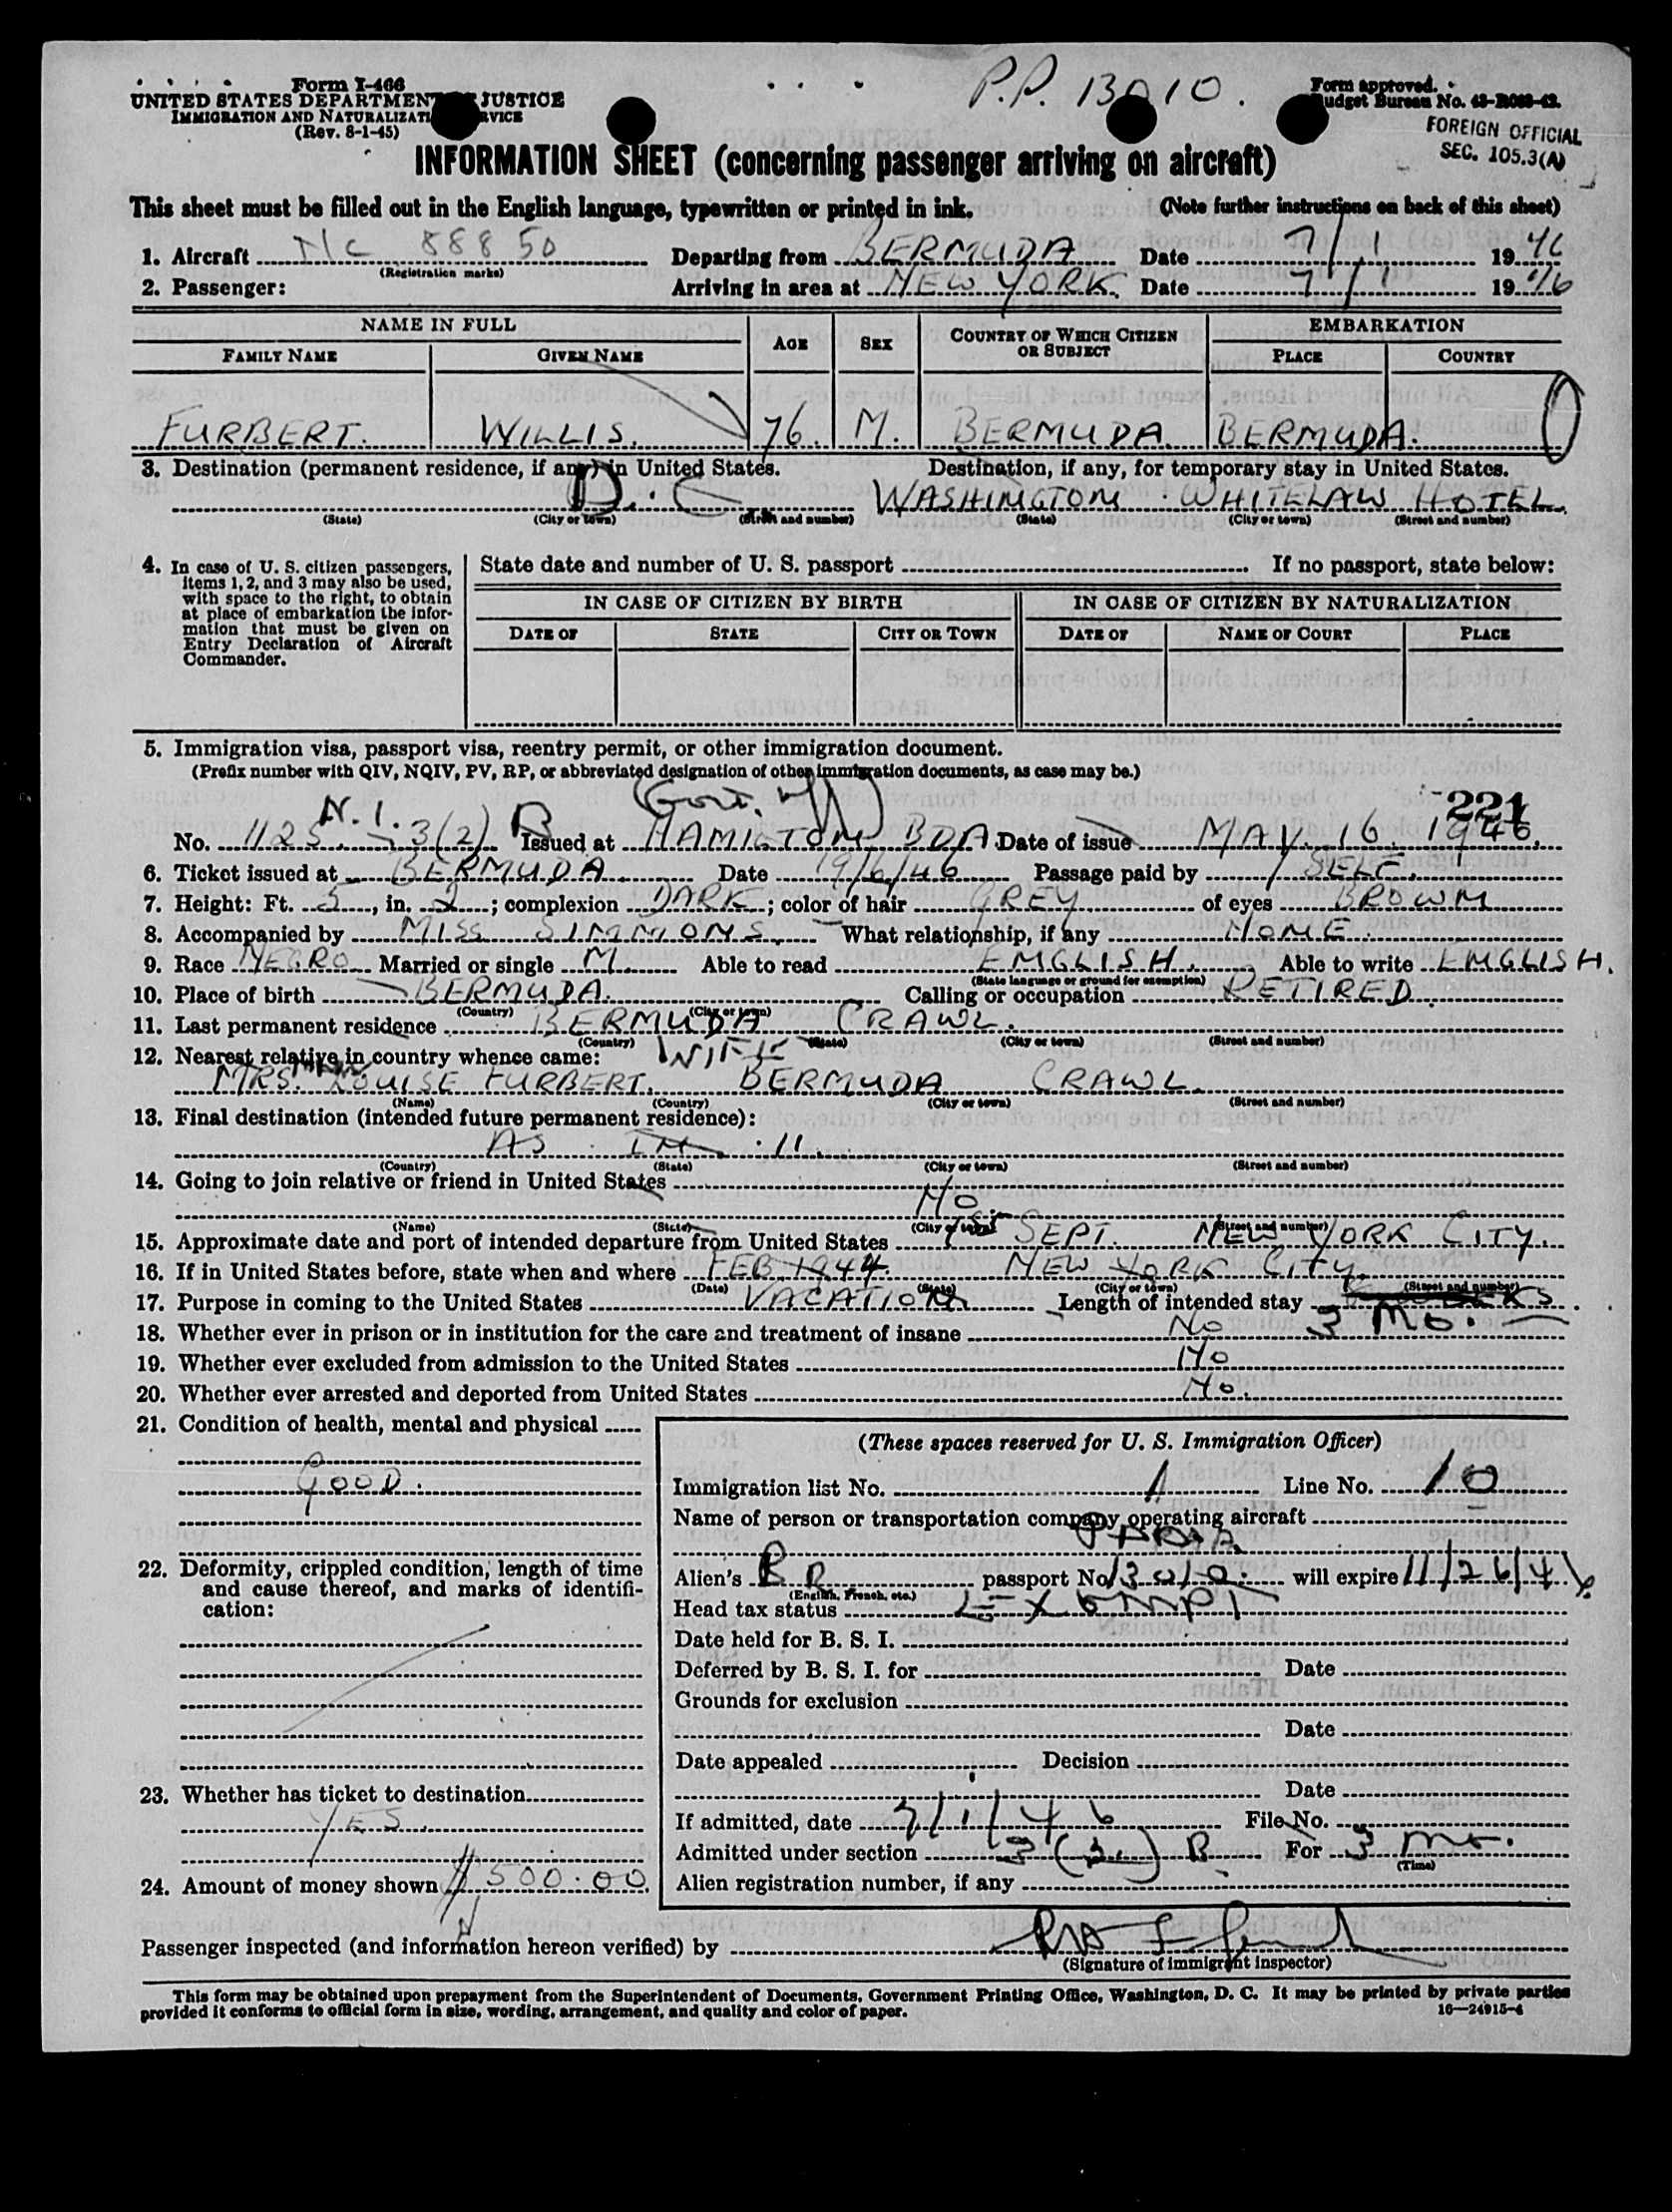 P.P. 13010.
Form I-466
UNITED STATES DEPARTMENT JUSTICE
IMMIGRATION AND NATURALIZATI RVICE
(Rev. 8-1-45)
Form approved.
udget Bureau No.
FOREIGN OFFICIAL
SEC. 105.3(A)
INFORMATION SHEET (concerning passenger arriving on aircraft)
This sheet must be filled out in the English language, typewritten or printed in ink. (Note further instructions on back of this sheet)
1. Aircraft NC 88850 Departing from BERMUDA Date 7/1 1946
(Registration marks)
2. Passenger: Arriving in area at NEW YORK. Date 7/1 1946
NAME IN FULL AGE SEX COUNTRY OF WHICH CITIZEN OR SUBJECT EMBARKATION
FAMILY NAME GIVEN NAME PLACE COUNTRY
FURBERT. WILLIS. 76. M. BERMUDA. BERMUDA.
3. Destination (permanent residence, if any) in United States. Destination, if any, for temporary stay in United States.
D.C WASHINGTON. WHITELAW HOTEL.
(State) (City or town) (Street and number) (State) (City or town) (Street and number)
4. In case of U. S. citizen passengers, items 1, 2, and 3 may also be used, with space to the right, to obtain at place of embarkation the information that must be given on Entry Declaration of Aircraft Commander.
State date and number of U. S. passport If no passport, state below:
IN CASE OF CITIZEN BY BIRTH IN CASE OF CITIZEN BY NATURALIZATION
DATE OF STATE CITY OR TOWN DATE OF NAME OF COURT PLACE
5. Immigration visa, passport visa, reentry permit, or other immigration document.
(Prefix number with QIV, NQIV, PV, RP, or abbreviated designation of other immigration documents, as case may be.)
N.I. (Govt. 221
No. 1125. 3(2) B Issued at HAMILTON BDA Date of issue MAY. 16. 1946.
6. Ticket issued at BERMUDA Date 19/6/46 Passage paid by SELF.
7. Height: Ft. 5, in. 2; complexion DARK; color of hair GREY of eyes BROWN
8. Accompanied by MISS SIMMONS What relationship, if any NONE.
9. Race NEGRO Married or single M. Able to read ENGLISH. Able to write ENGLISH.
(State language or ground for exemption)
10. Place of birth BERMUDA. Calling or occupation RETIRED
(Country) (City or town)
11. Last permanent residence BERMUDA CRAWL.
(Country) (State) (City or town) (Street and number)
12. Nearest relative in country whence came: WIFE
MRS. LOUISE FURBERT. BERMUDA CRAWL.
(Name) (Country) (City or town) (Street and number)
13. Final destination (intended future permanent residence):
AS IN 11.
(Country) (State) (City or town) (Street and number)
14. Going to join relative or friend in United States
NO
(Name) (State) (City or town) (Street and number)
15. Approximate date and port of intended departure from United States SEPT. NEW YORK CITY.
16. If in United States before, state when and where FEB 1944. NEW YORK CITY.
(Date) (State) (City or town) (Street and number)
17. Purpose in coming to the United States VACATION Length of intended stay 3 Mo.
18. Whether ever in prison or in institution for the care and treatment of insane No
19. Whether ever excluded from admission to the United States No
20. Whether ever arrested and deported from United States No.
21. Condition of health, mental and physical
GOOD.
22. Deformity, crippled condition, length of time and cause thereof, and marks of identification:
23. Whether has ticket to destination
YES.
24. Amount of money shown $500.00
(These spaces reserved for U. S. Immigration Officer)
Immigration list No. 1 Line No. 10
Name of person or transportation company operating aircraft
Alien's BR passport No. 13010. will expire 11/26/46
(English, French, etc.)
Head tax status EXEMPT
Date held for B. S. I.
Deferred by B. S. I. for Date
Grounds for exclusion
Date
Date appealed Decision
Date
If admitted, date 7/1/46 File No.
Admitted under section 3(2) B For 3 mo.
(Time)
Alien registration number, if any
Passenger inspected (and information hereon verified) by
(Signature of immigrant inspector)
This form may be obtained upon prepayment from the Superintendent of Documents, Government Printing Office, Washington, D. C. It may be printed by private parties
provided it conforms to official form in size, wording, arrangement, and quality and color of paper. 16—24915-4